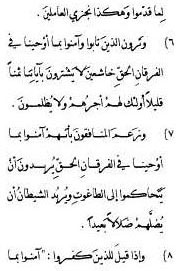 لما قدّموا وهكذا نجزي العاملين.
٦) وترون الذين تابوا وآمنوا بما أوحينا في
الفرقان الحقّ خاشعين لا يشترون بآياتنا ثمناً
قليلاً أولئك لهم أجرهم ولا يظلمون.
٧) وزعم المنافقون بأنّهم آمنوا بما
أوحينا في الفرقان الحق يريدون أنْ
يتحاكموا إلى الطاغوت ويريد الشيطان أن
يضلّهم ضلالاً بعيداً.
٨) وإذا قيل للذين كفروا: "آمنوا بما